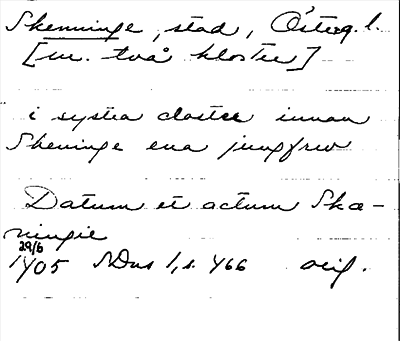 Skenninge, stad, Österg. l.
[m. två kloster]
i systra closter innan
Skeninge ena jungfrw
Datum et actum Skæ-
ningie
29/6
1405 SDns 1, s. 466 orig.